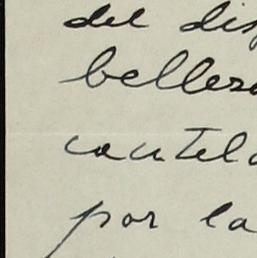 del dis
belleza
cautela
por la